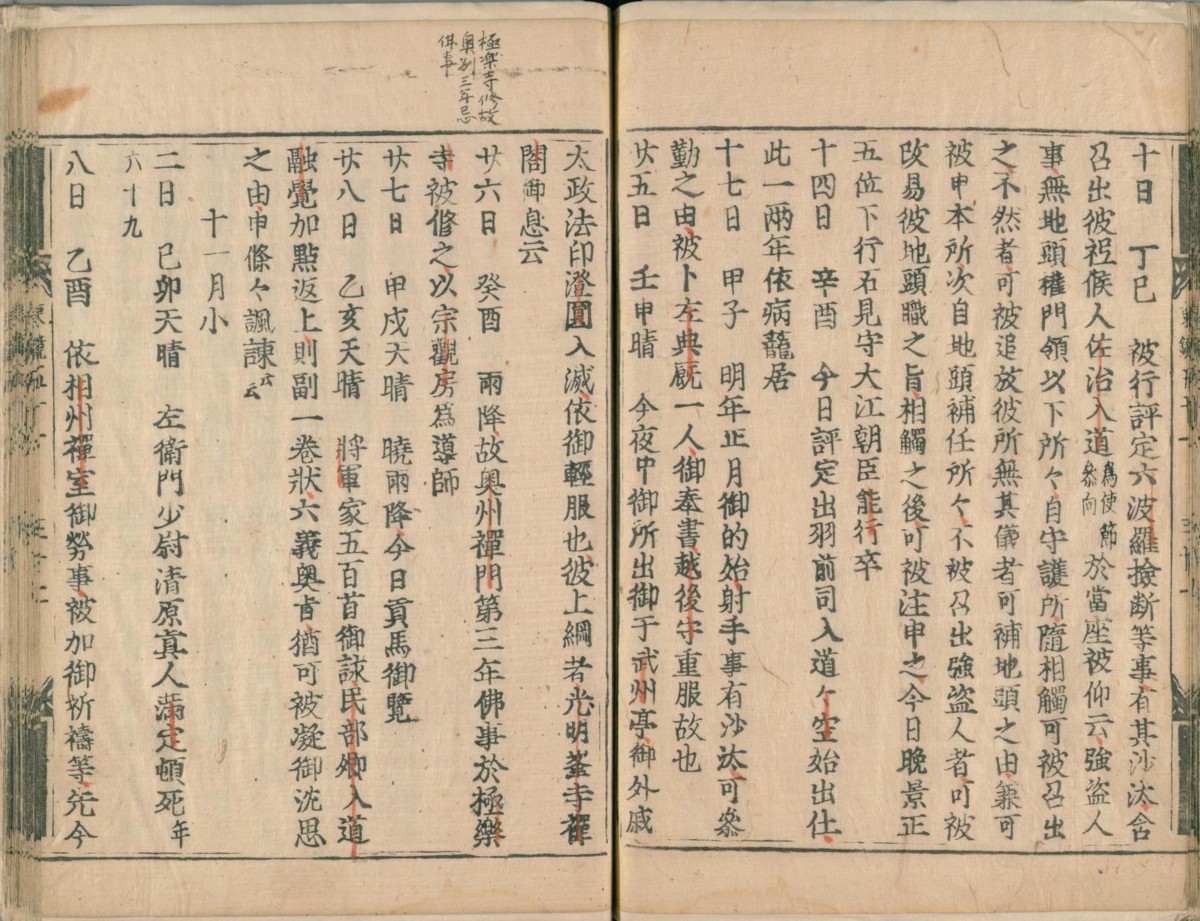 十日　丁巳　被行評定六波羅撿断等事有其沙汰舍
召出彼祗候人佐治入道為使節参向於當座被仰云強盗人
事無地頭權門領以下所々自守護所隨相觸可被召出
之不然者可被追放彼所無其儀者可補地頭之由兼可
被申本所次自地頭補任所々不被召出強盗人者可被
改易彼地頭職之旨相觸之後可被注申之今日晩景正
五位下行石見守大江朝臣能行卒
十四日　辛酉　今日評定出羽前司入道々空始出仕
此一兩年依病籠居
十七日　甲子　明年正月御的始射手事有沙汰可参
勤之由被卜左典厩一人御奉書越後守重服故也
廿五日　壬申晴　今夜中御所出御于武州亭御外戚
極楽寺修故
奥州三年忌
佛事
太政法印澄圓入滅依御輕服也彼上綱者光明峯寺禪
閤御息云
廿六日　癸酉　雨降故奥州禪門第三年佛事於極樂
寺被修之以宗觀房為導師
廿七日　甲戌天晴　曉雨降今日貢馬御覽
廿八日　乙亥天晴　將軍家五百首御詠民部卿入道
融覺加點返上則副一卷狀六義奥旨猶可被凝御沈思
之由申條々諷諫云云
十一月小
二日　己卯天晴　左衛門少尉清原真人滿定頓死年
六十九
八日　乙酉　依相州禪室御勞事被加御祈禱等先今